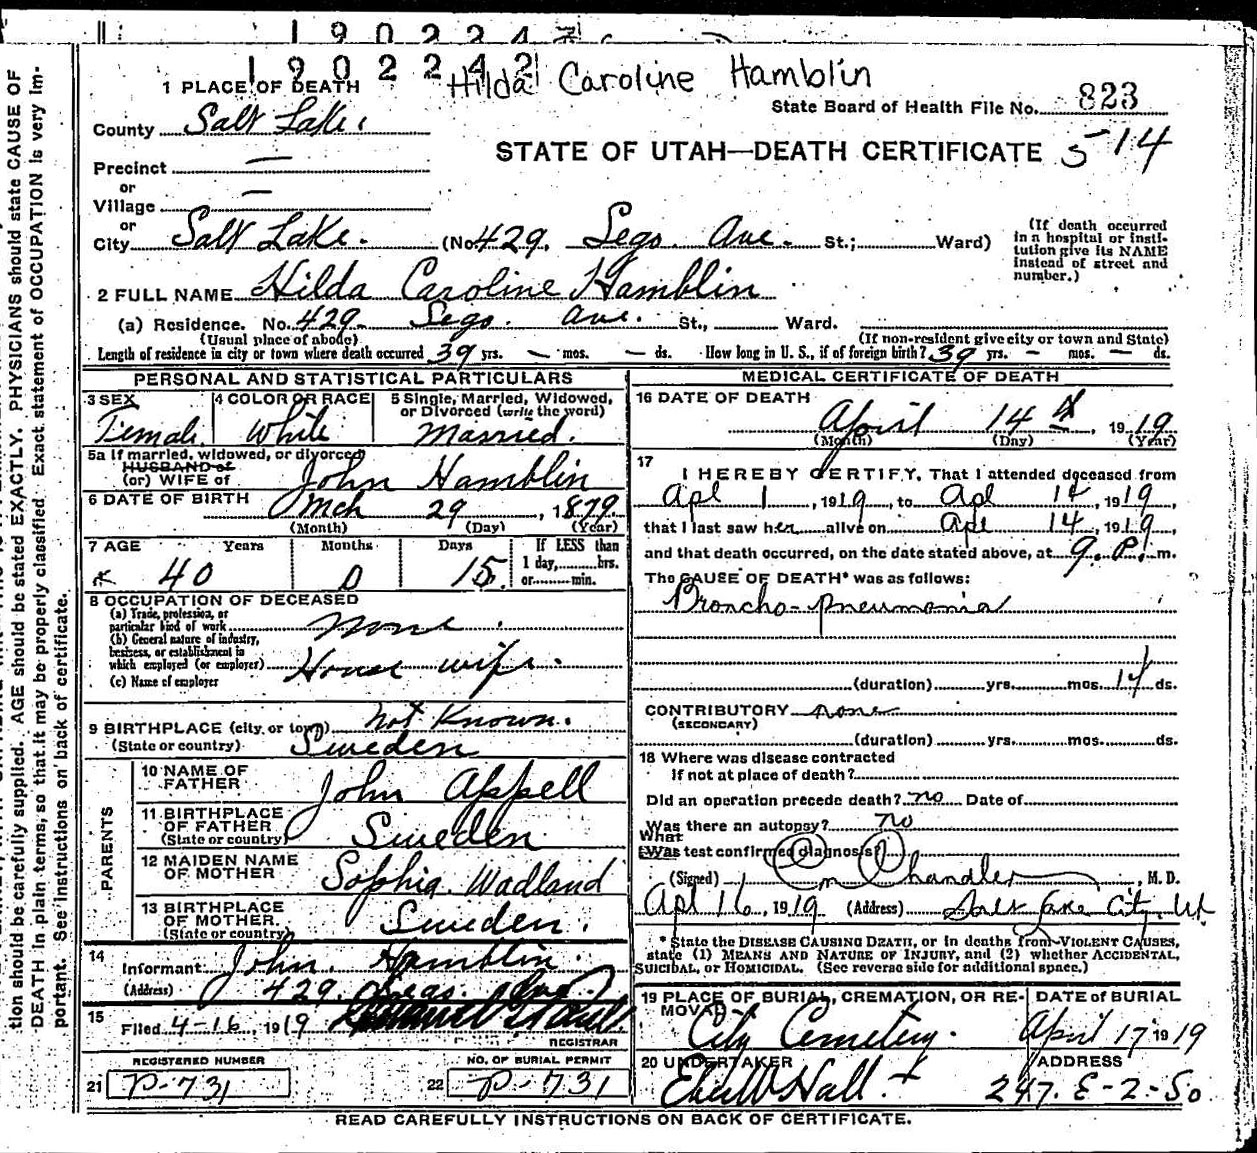 1902242
Hilda Caroline Hamblin
1 PLACE OF DEATH
State Board of Health File No. 823
County Salt Lake.
STATE OF UTAH—DEATH CERTIFICATE 514
Precinct —
or
Village —
or
City Salt Lake. (No 429. Sego. Ave. St.; Ward)
(If death occurred in a hospital or insti-tution give its NAME instead of street and number.)
2 FULL NAME Hilda Caroline Hamblin
(a) Residence. No. 429 Sego. Ave. St., Ward.
(Usual place of abode) (If non-resident give city or town and State)
Length of residence in city or town where death occurred 39 yrs. — mos. — ds. How long in U. S., if of foreign birth? 39 yrs. — mos. — ds.
PERSONAL AND STATISTICAL PARTICULARS
3 SEX Female.
4 COLOR OR RACE White
5 Single, Married, Widowed, or Divorced (write the word) Married.
5a If married, widowed, or divorced
HUSBAND of
(or) WIFE of John Hamblin
6 DATE OF BIRTH Mch 29, 1879
(Month) (Day) (Year)
7 AGE Years Months Days If LESS than
40 0 15. 1 day, hrs.
or min.
8 OCCUPATION OF DECEASED
(a) Trade, profession, or
particular kind of work none.
(b) General nature of industry,
business, or establishment in
which employed (or employer) House wife.
(c) Name of employer
9 BIRTHPLACE (city or town) not Known.
(State or country) Sweden
PARENTS
10 NAME OF FATHER John Appell
11 BIRTHPLACE OF FATHER (State or country) Sweden
12 MAIDEN NAME OF MOTHER Sophia. Wadland
13 BIRTHPLACE OF MOTHER (State or country) Sweden.
14
Informant John. Hamblin.
(Address) 429. Sego. Ave.
15
Filed 4-16, 1919
REGISTRAR
REGISTERED NUMBER NO. OF BURIAL PERMIT
21 P-731 22 P-731
MEDICAL CERTIFICATE OF DEATH
16 DATE OF DEATH
April 14th, 1919
(Month) (Day) (Year)
17
I HEREBY CERTIFY, That I attended deceased from
Apl 1, 1919, to Apl 14, 1919,
that I last saw her alive on Apl 14, 1919,
and that death occurred, on the date stated above, at 9. P. m.
The CAUSE OF DEATH* was as follows:
Broncho-pneumonia
(duration) yrs. mos. 14 ds.
CONTRIBUTORY none
(SECONDARY)
(duration) yrs. mos. ds.
18 Where was disease contracted
If not at place of death?
Did an operation precede death? no Date of
Was there an autopsy? no
What
Was test confirmed diagnosis?
(Signed) C m Chandler, M. D.
Apl 16, 1919 (Address) Salt Lake City, Ut
* State the DISEASE CAUSING DEATH, or in deaths from VIOLENT CAUSES,
state (1) MEANS AND NATURE OF INJURY, and (2) whether ACCIDENTAL,
SUICIDAL, or HOMICIDAL. (See reverse side for additional space.)
19 PLACE OF BURIAL, CREMATION, OR RE-MOVAL DATE OF BURIAL
City Cemetery. April 17 1919
20 UNDERTAKER ADDRESS
Hall 247. E-2-So
READ CAREFULLY INSTRUCTIONS ON BACK OF CERTIFICATE.
tion should be carefully supplied. AGE should be stated EXACTLY. PHYSICIANS should state CAUSE OF
DEATH in plain terms, so that it may be properly classified. Exact statement of OCCUPATION is very im-
portant. See instructions on back of certificate.